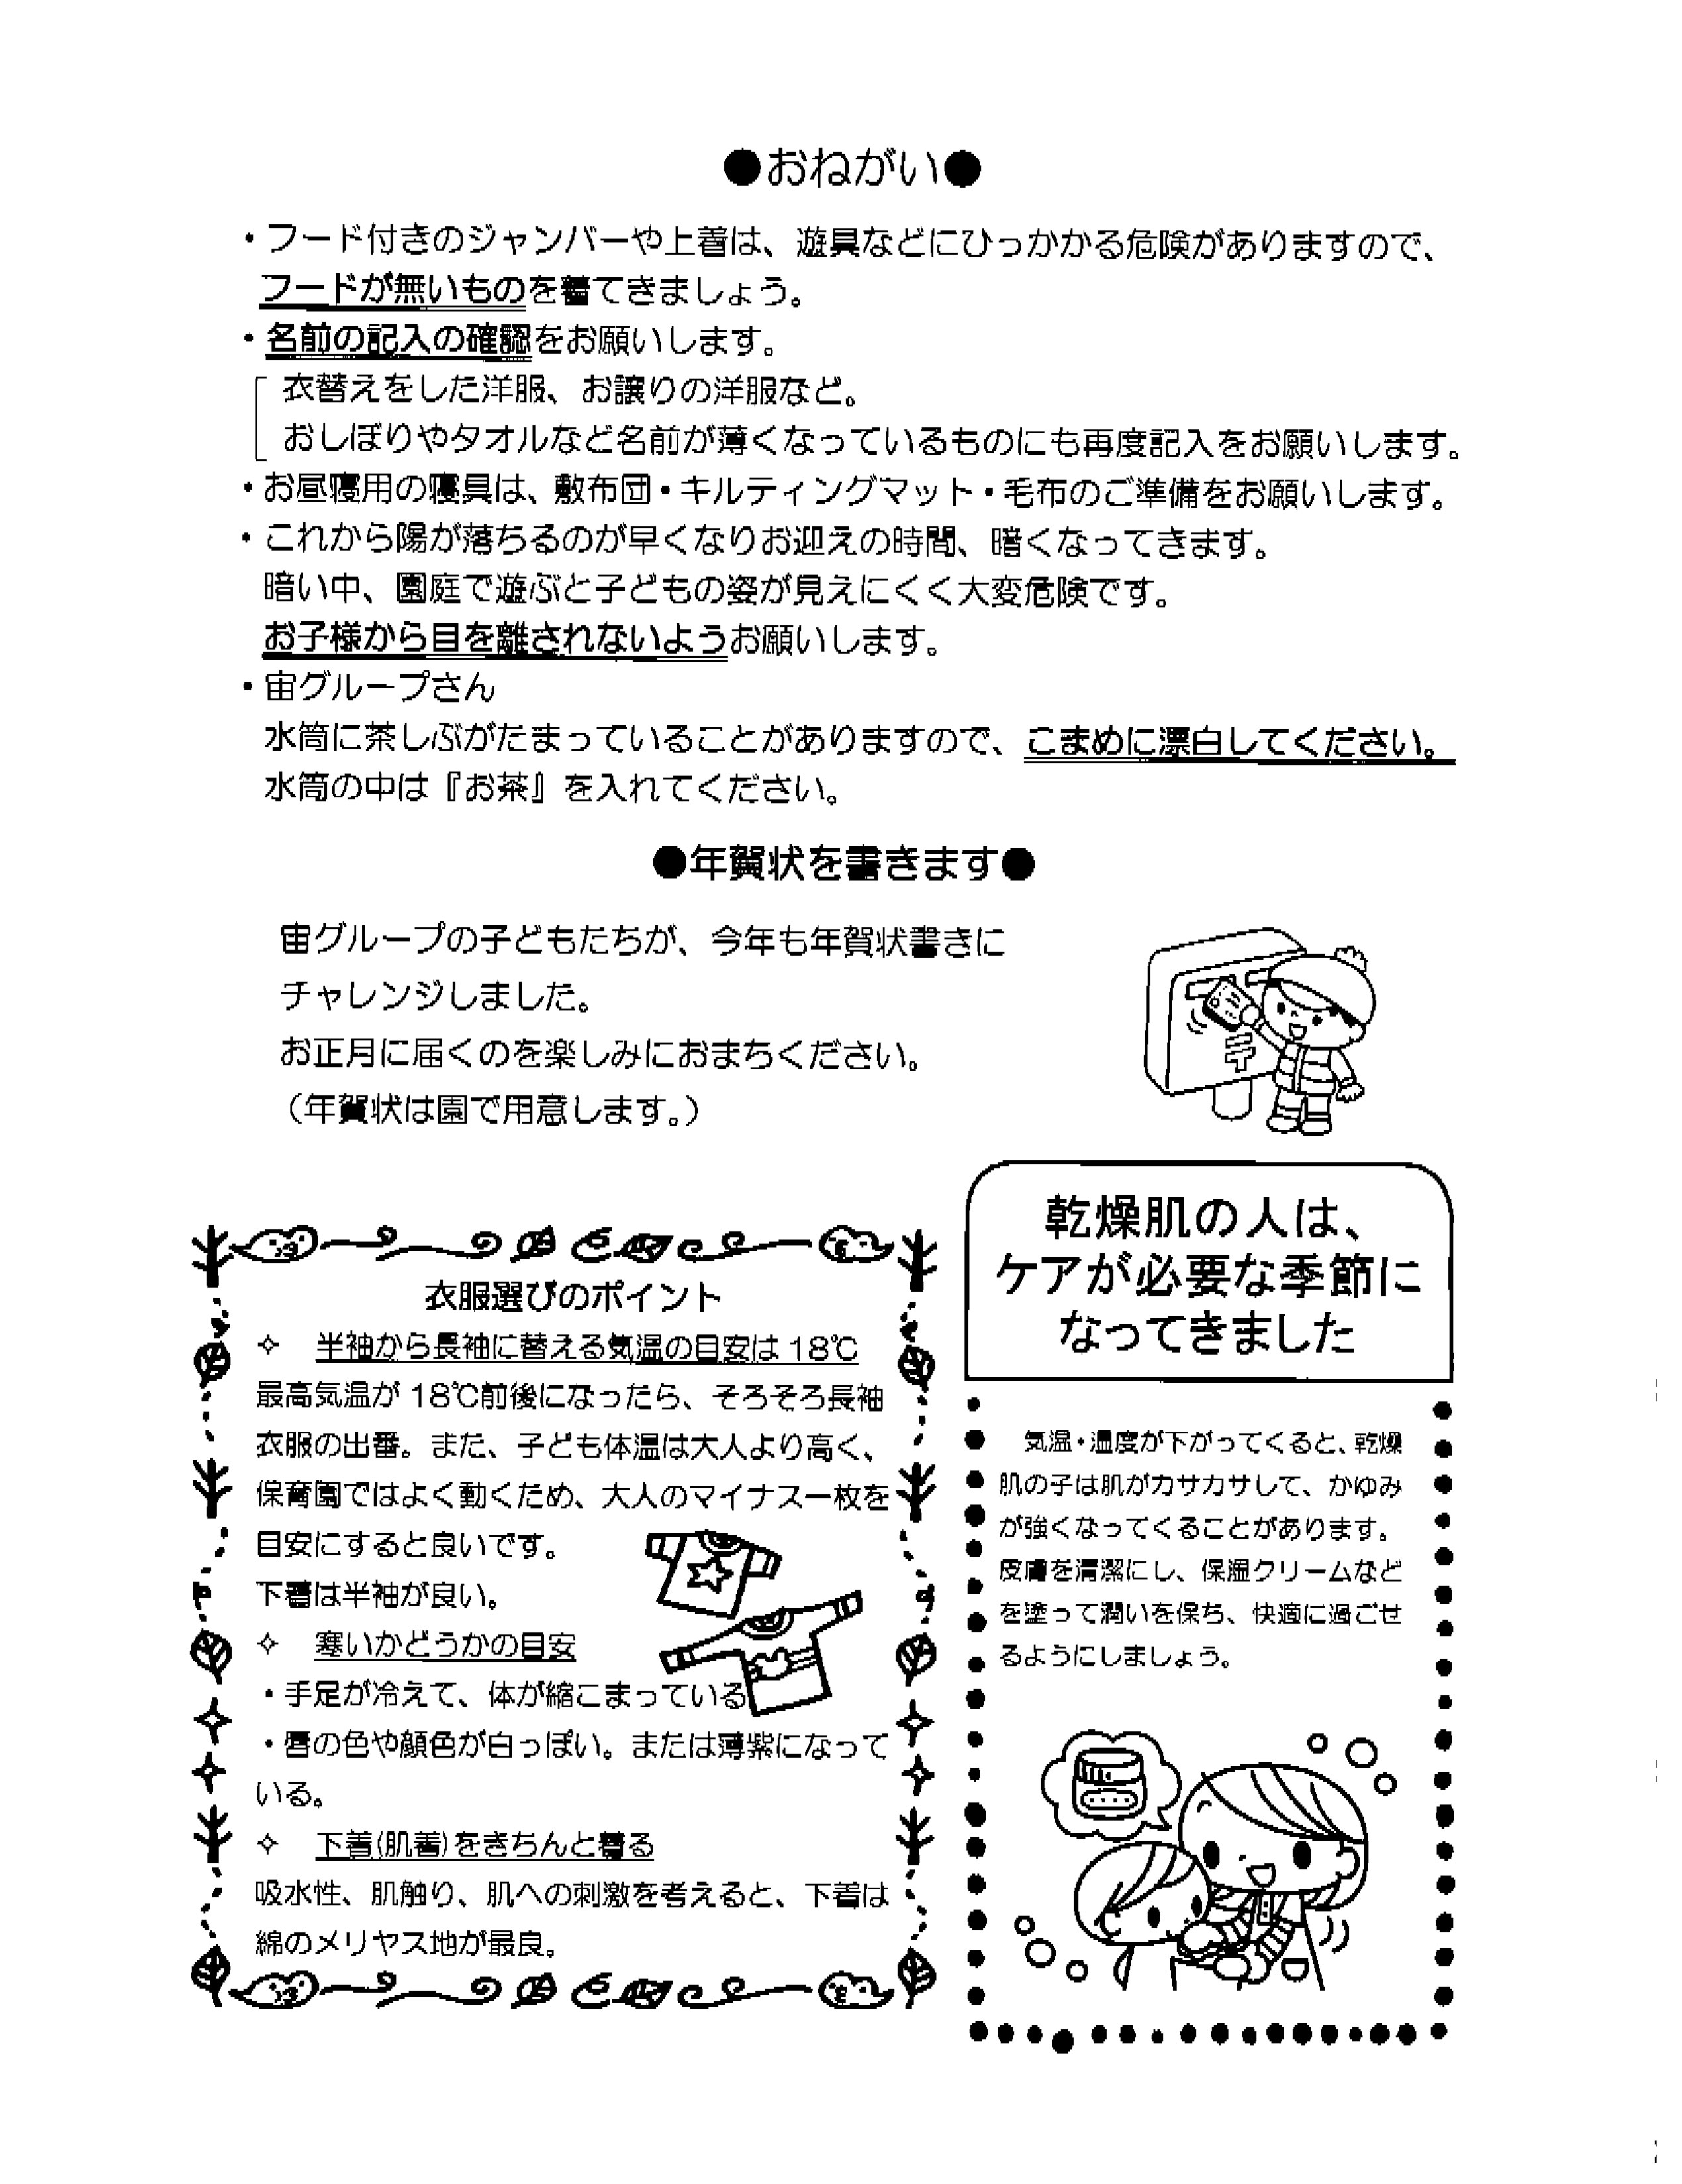 ●おねがい●
・フード付きのジャンバーや上着は、遊具などにひっかかる危険がありますので、
フードが無いものを着てきましょう。
・名前の記入の確認をお願いします。
衣替えをした洋服、お譲りの洋服など。
おしぼりやタオルなど名前が薄くなっているものにも再度記入をお願いします。
・お昼寝用の寝具は、敷布団・キルティングマット・毛布のご準備をお願いします。
・これから陽が落ちるのが早くなりお迎えの時間、暗くなってきます。
暗い中、園庭で遊ぶと子どもの姿が見えにくく大変危険です。
お子様から目を離されないようお願いします。
・宙グループさん
水筒に茶しぶがたまっていることがありますので、こまめに漂白してください。
水筒の中は『お茶』を入れてください。
●年賀状を書きます●
宙グループの子どもたちが、今年も年賀状書きに
チャレンジしました。
お正月に届くのを楽しみにおまちください。
（年賀状は園で用意します。）
衣服選びのポイント
✧ 半袖から長袖に替える気温の目安は 18℃
最高気温が 18℃前後になったら、そろそろ長袖
衣服の出番。また、子ども体温は大人より高く、
保育園ではよく動くため、大人のマイナス一枚を
目安にすると良いです。
下着は半袖が良い。
✧ 寒いかどうかの目安
・手足が冷えて、体が縮こまっている
・唇の色や顔色が白っぽい。または薄紫になって
いる。
✧ 下着(肌着)をきちんと着る
吸水性、肌触り、肌への刺激を考えると、下着は
綿のメリヤス地が最良。
乾燥肌の人は、
ケアが必要な季節に
なってきました
気温・湿度が下がってくると、乾燥
肌の子は肌がカサカサして、かゆみ
が強くなってくることがあります。
皮膚を清潔にし、保湿クリームなど
を塗って潤いを保ち、快適に過ごせ
るようにしましょう。